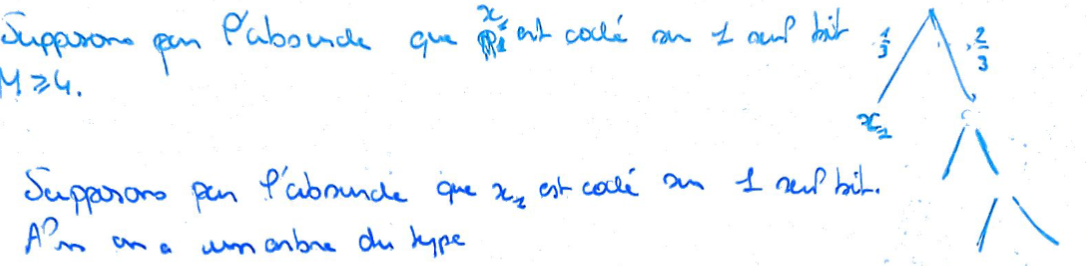 Supposons par l'absurde que x₁ est codé sur 1 seul bit
M ≥ 4.
1/3
2/3
x₁
Supposons par l'absurde que x₁ est codé sur 1 seul bit.
Alors on a un arbre du type